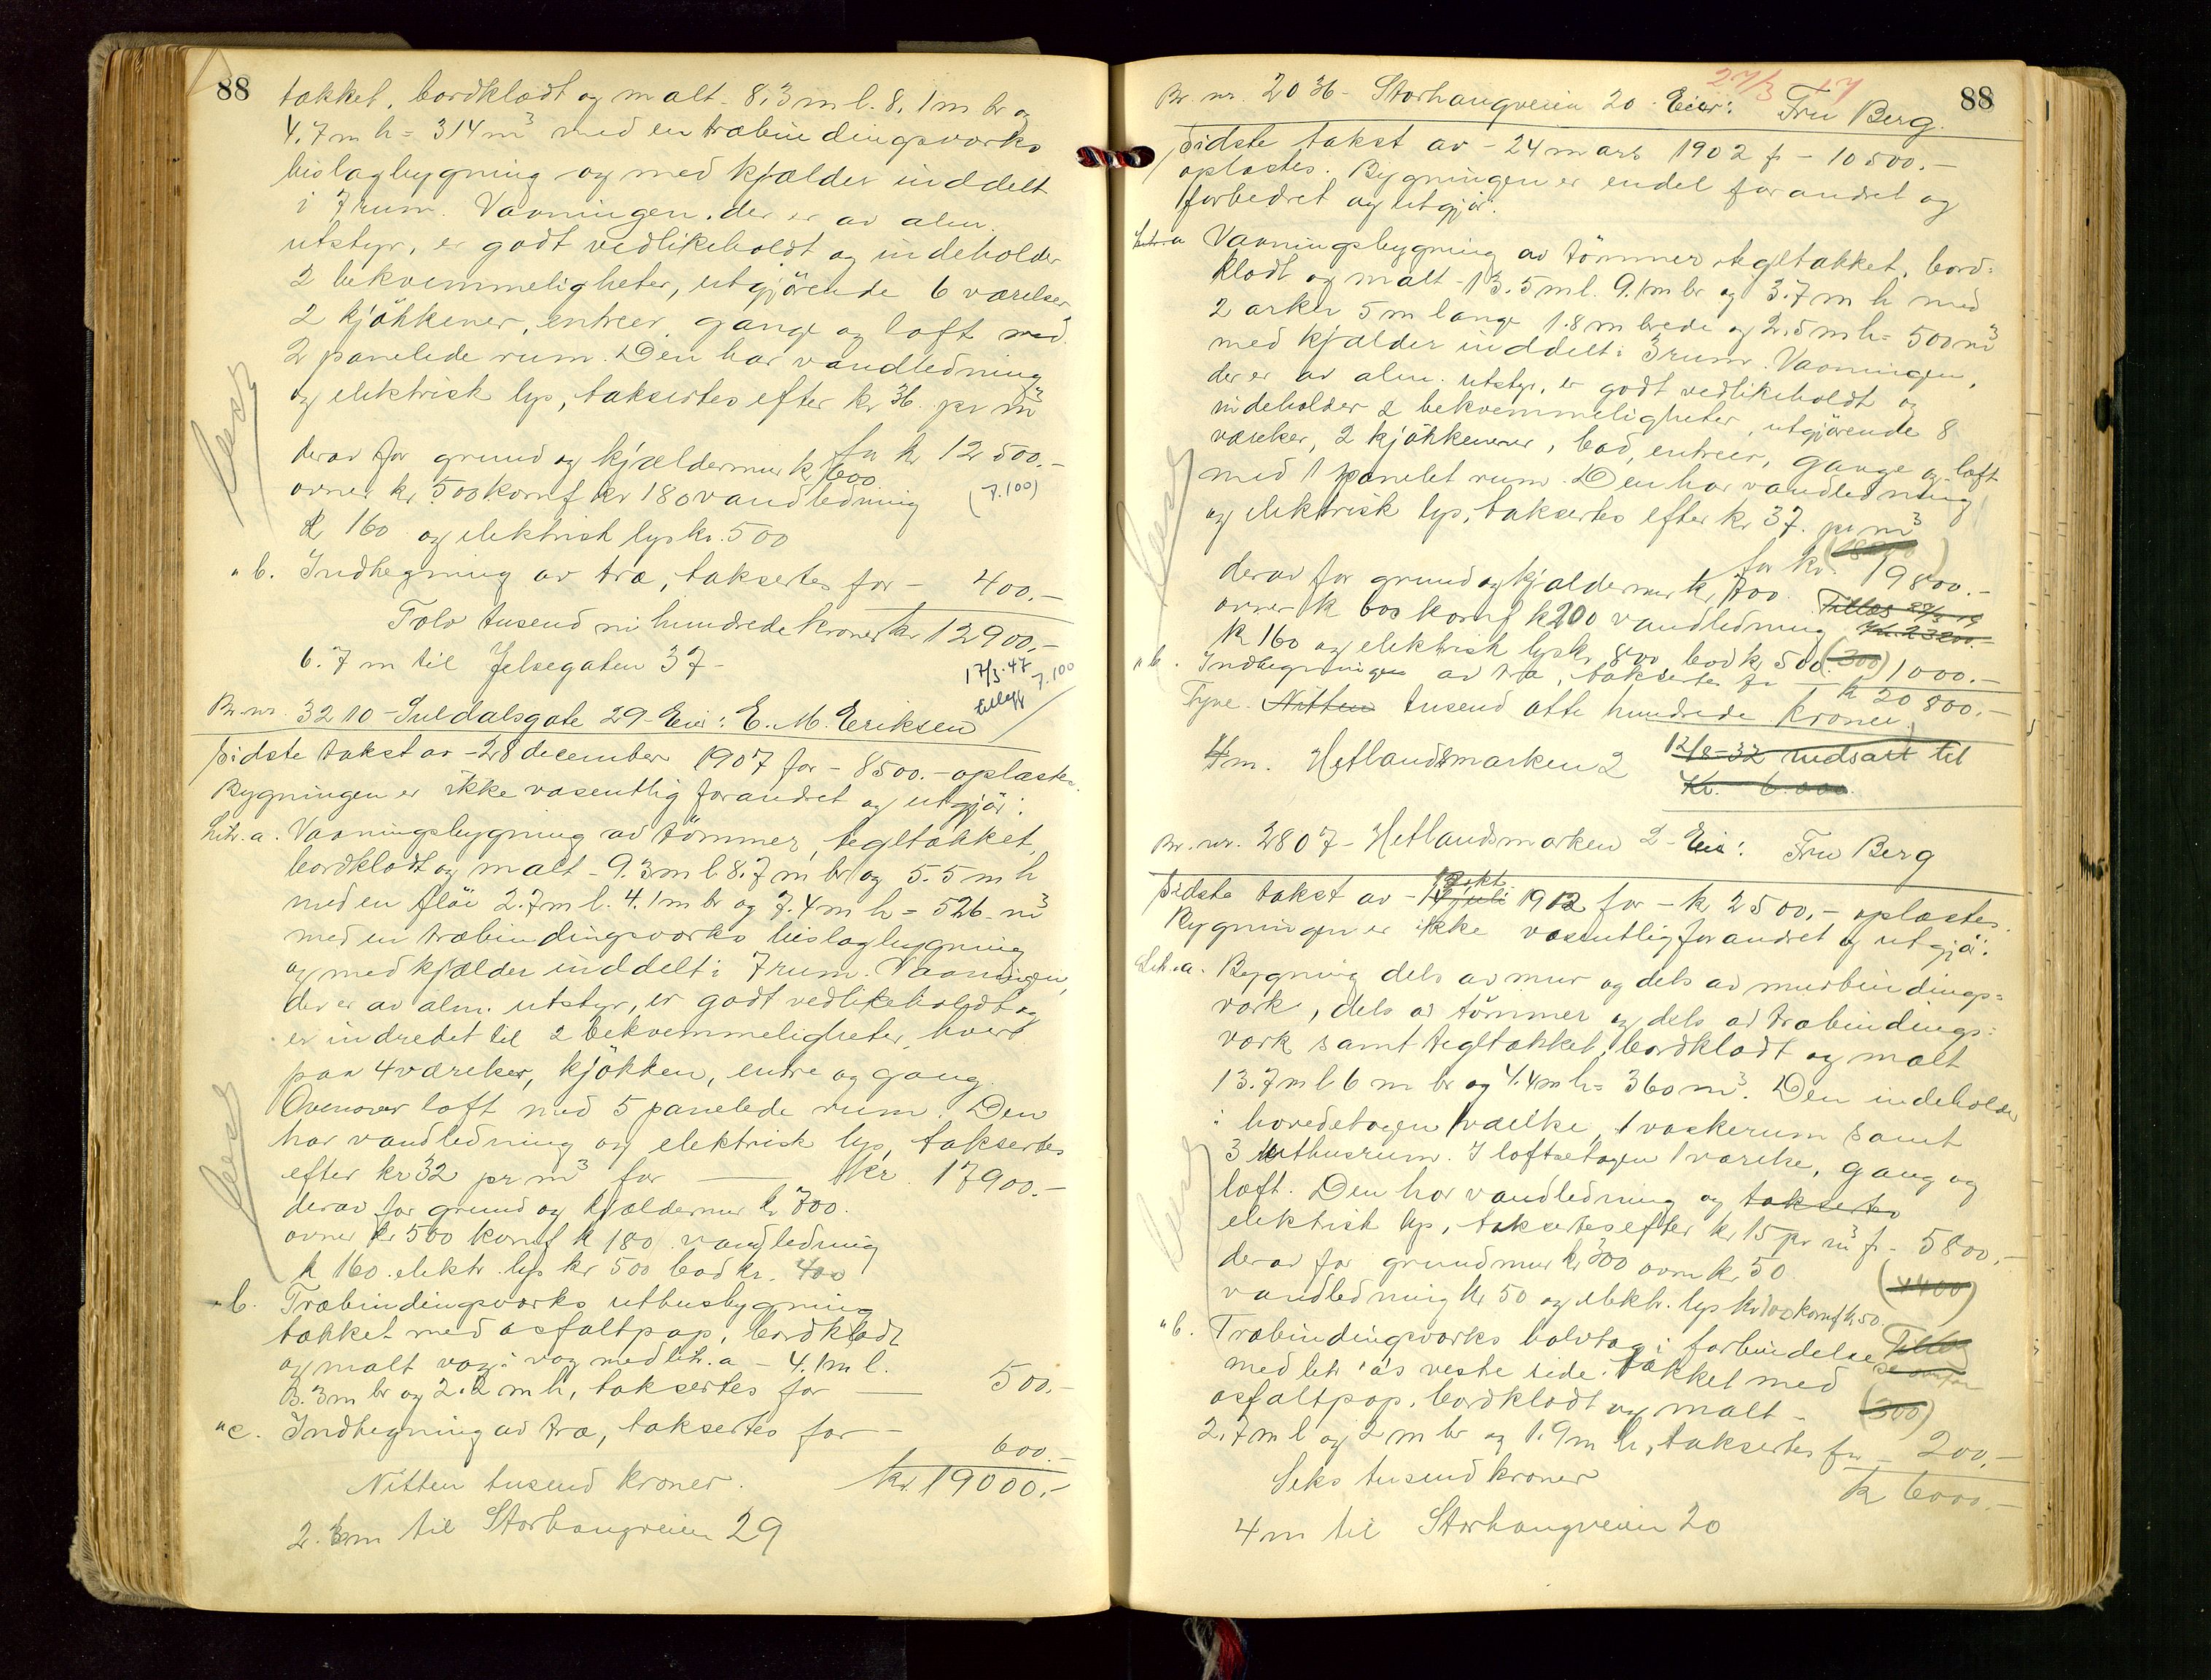 88
takket, bordklædt og malt - 8.3 m l. 8.1 m br og
4.7 m h = 314 m³ med en træbindingsværks
bislagbygning og med kjælder inddelt
i 7 rum. Vaaningen, der er av alm.
utstyr, er godt vedlikeholdt og indeholder
2 bekvemmeligheter, utgjörende 6 værelser
2 kjökkener, entreer, gange og loft med
2 panelede rum. Den har vandledning
og elektrisk lys, taksertes efter kr 36 pr m³
for kr 12500.-
derav for grund og kjældermur kr 600
ovner kr. 500 komf kr 180 vandledning
(7.100)
kr 160 og elektrisk lys kr. 500
" b. Indhegning av træ, taksertes for - 400.-
Tolv tusend ni hundrede kroner kr 12900.-
6.7 m til Jelsegaten 37-
17/3-47
tillegg 7.100
Br. nr. 3210 - Suldalsgate 29 - Eier: E. M. Eriksen
Sidste takst av - 28 december 1907 for - 8500.- oplæstes.
Bygningen er ikke væsentlig forandret og utgjör:
Litr. a. Vaaningsbygning av tömmer, tegltækket,
bordklædt og malt - 9.3 m l 8.7 m br og 5.5 m h
med en flöi 2.7 m l. 4.1 m br og 7.4 m h = 526 m³
med en træbindingsværks bislagbygning
og med kjælder inddelt i 7 rum. Vaaningen,
der er av alm. utstyr, er godt vedlikeholdt og
er indredet til 2 bekvemmeligheter, hver
paa 4 værelser, kjökken, entre og gang.
Ovenover loft med 5 panelede rum. Den
har vandledning og elektrisk lys, taksertes
efter kr 32 pr m³ for - kr. 17900.-
derav for grund og kjældermur kr 700.
ovner kr 500 komf kr 180 vandledning
kr 160. elektr. lys kr 500 bad kr. 400
" b. Træbindingsværks uthusbygning
tækket med asfaltpap, bordklædt
og malt væg i væg med litr. a - 4.1 m l.
3.3 m br og 2.2 m h, taksertes for - 500.-
" c. Indhegning av træ, taksertes for - 600.-
Nitten tusend kroner. kr. 19000.-
2.3 m til Storhaugveien 29
27/3 17
88
Br. nr. 2036 - Storhaugveien 20. Eier: Fru Berg.
Sidste takst av - 24 mars 1902 fr - 10500.-
oplæstes. Bygningen er endel forandret og
forbedret og utgjör:
Litr. a Vaaningsbygning av tömmer, tegltækket, bord=
klædt og malt - 13.5 m l. 9.1 m br og 3.7 m h med
2 arker 5 m lange 1.8 m brede og 2.5 m h = 500 m³
med kjælder inddelt i 3 rum. Vaaningen,
der er av alm. utstyr, er godt vedlikeholdt og
indeholder 2 bekvemmeligheter, utgjörende 8
værelser, 2 kjökkener, bad, entreer, gange og loft
med 1 panelet rum. Den har vandledning
og elektrisk lys, taksertes efter kr 37. pr m³
for kr. 19800.-
derav for grund og kjældermur kr 700.
ovner kr 600 komf kr 200 vandledning
kr 160 og elektrisk lys kr 800 bad kr 500
" b. Indhegningen av træ, taksertes for (300) 1000.-
kr 20800.-
Tyve Nitten tusend otte hundrede kroner
4 m. Hetlandsmarken 2
12/8-32 nedsatt til
Kr. 6.000
Br. nr. 2807 - Hetlandsmarken 2 - Eier: Fru Berg
Sidste takst av - 14 juli 1912 for - kr 2500.- oplæstes.
Bygningen er ikke væsentlig forandret og utgjör:
Litr. a. Bygning dels av mur og dels av murbindings=
værk, dels av tömmer og dels av træbindings=
værk samt tegltækket, bordklædt og malt
13.7 m l 6 m br og 4.4 m h = 360 m³. Den indeholder
i hovedetagen 1 værelse, 1 vaskerum samt
3 uthusrum. I loftsetagen 1 værelse, gang og
loft. Den har vandledning og taksertes
elektrisk lys, taksertes efter kr 15 pr m³ fr - 5800.-
derav for grundmur kr 300 ovn kr. 50
(4400)
vandledning kr 50 og elektr. lys kr 100 komf kr. 50.
" b. Træbindingsværks halvtag i forbindelse
med litr. a's vestre side. Tækket med
asfaltpap, bordklædt og malt - (300)
2.7 m l og 2 m br og 1.9 m h, taksertes for - 200.-
Seks tusend kroner kr 6000.-
4 m til Storhaugveien 20